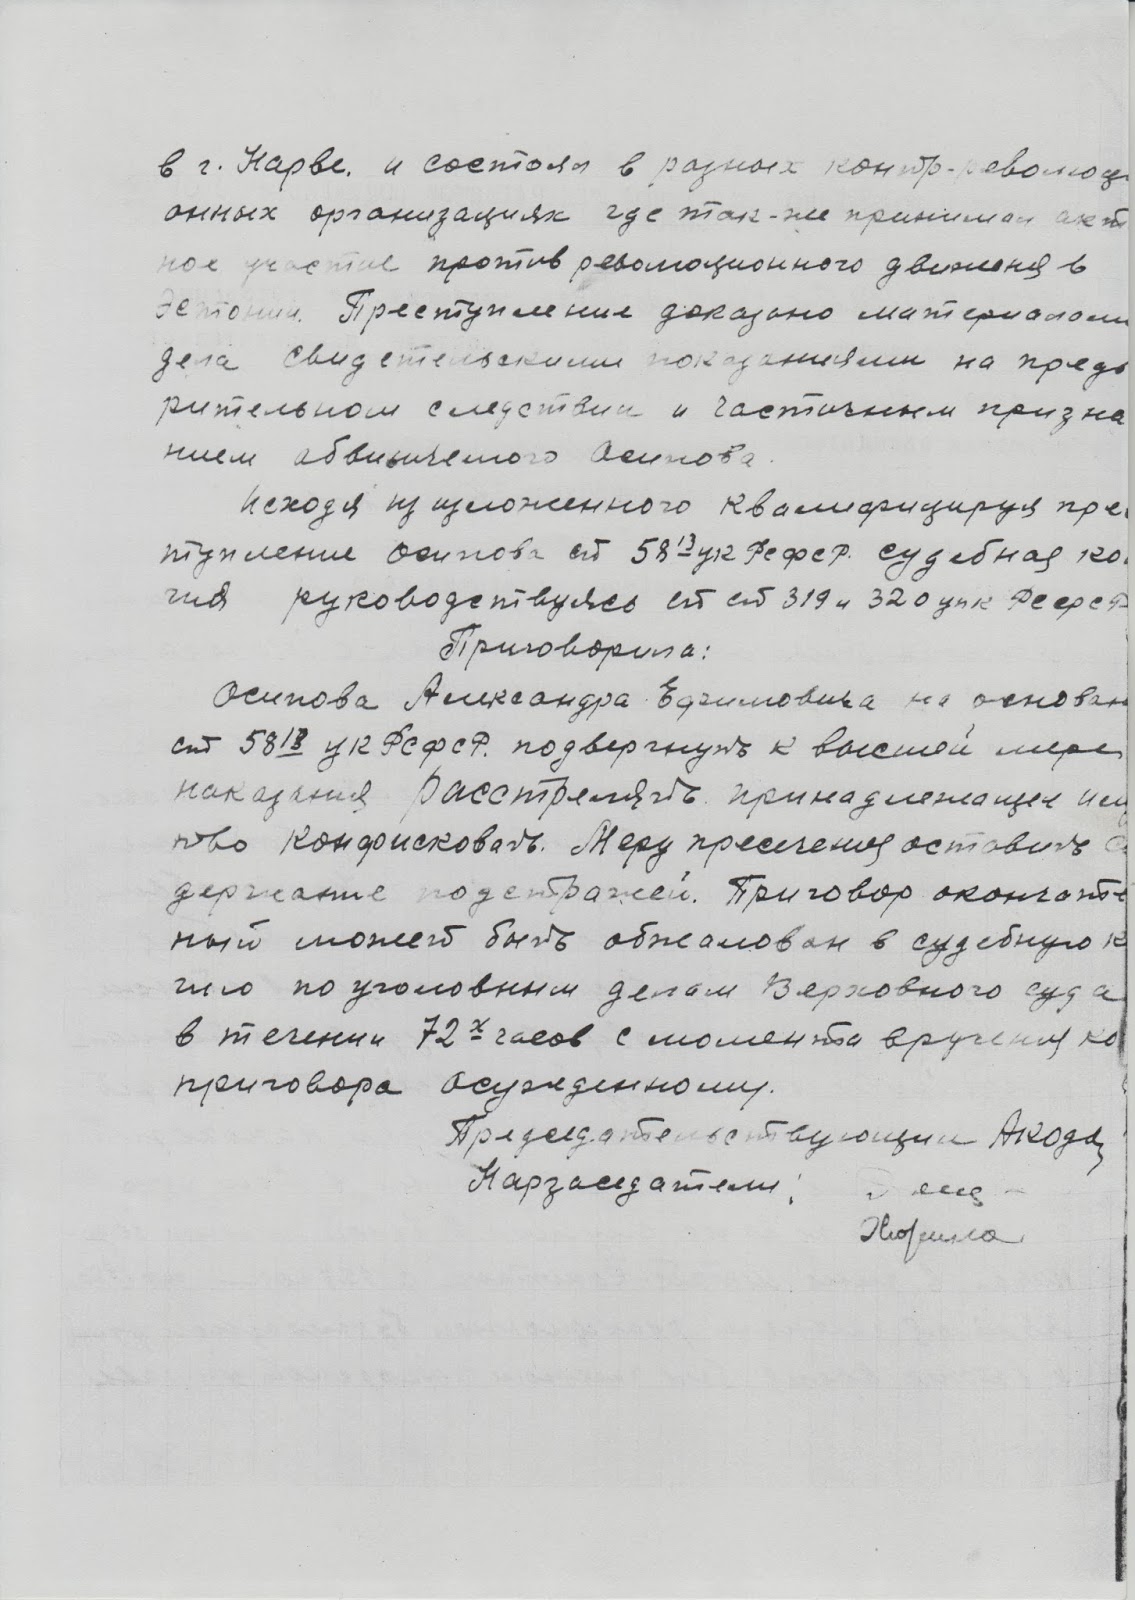 в г. Нарве. и состоял в разных контр-революц
онных организациях где так-же принимал акт
ное участие против революционного движеня в
Эстонии. Преступление доказано материалами
дела свидетельскими показаниями на предв
рительном следствии и частичным призна
нием обвиняемого Осипова.
Исходя из изложенного квалифицируя пре
тупление Осипова ст 58 13 ук РСФСР. судебная ко
гия руководствуясь ст ст 319 и 320 упк РСФСР
Приговорила:
Осипова Александра Ефимовича на основан
ст 58 13 ук РСФСР. подвергнуть к высшей мере
наказания расстрелять. принадлежащее им
тво конфисковать. Меру пресечения оставить с
держание подстражей. Приговор окончате
ный может быть обжалован в судебную к
гию по уголовным делам Верховного суда
в течении 72 х часов с момента вручения ко
приговора осужденному.
Председательствующий
Нарзаседатели: